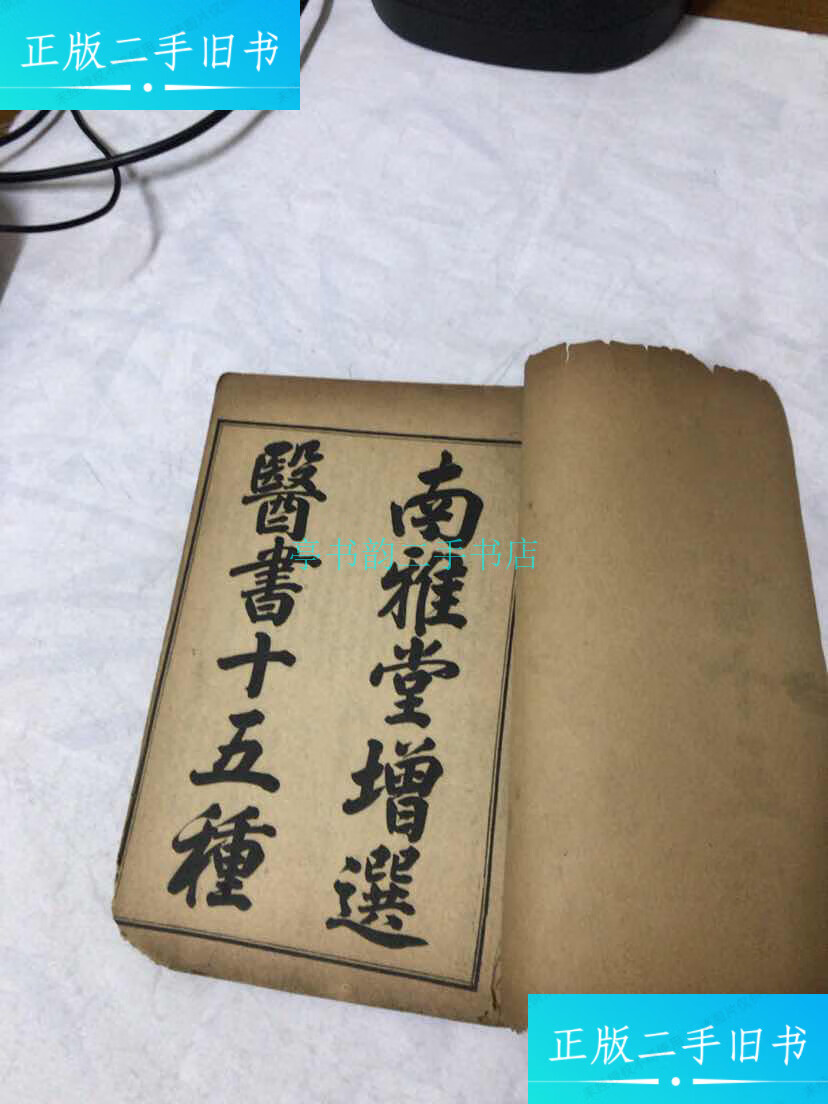 正版二手旧书
南雅堂增選
醫書十五種
亭书韵二手书店
正版二手旧书